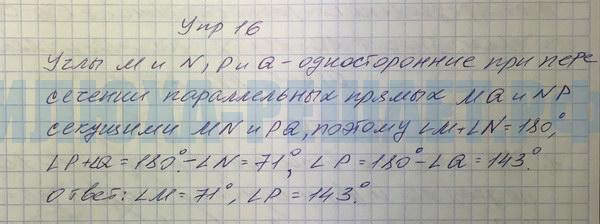 Упр 16
Углы M и N, P и Q - односторонние при пере
сечении параллельных прямых MQ и NP
секущими MN и PQ, поэтому ∠M+∠N=180°,
∠P+∠Q=180°-∠N=71°, ∠P=180°-∠Q=143°.
Ответ: ∠M=71°, ∠P=143°.